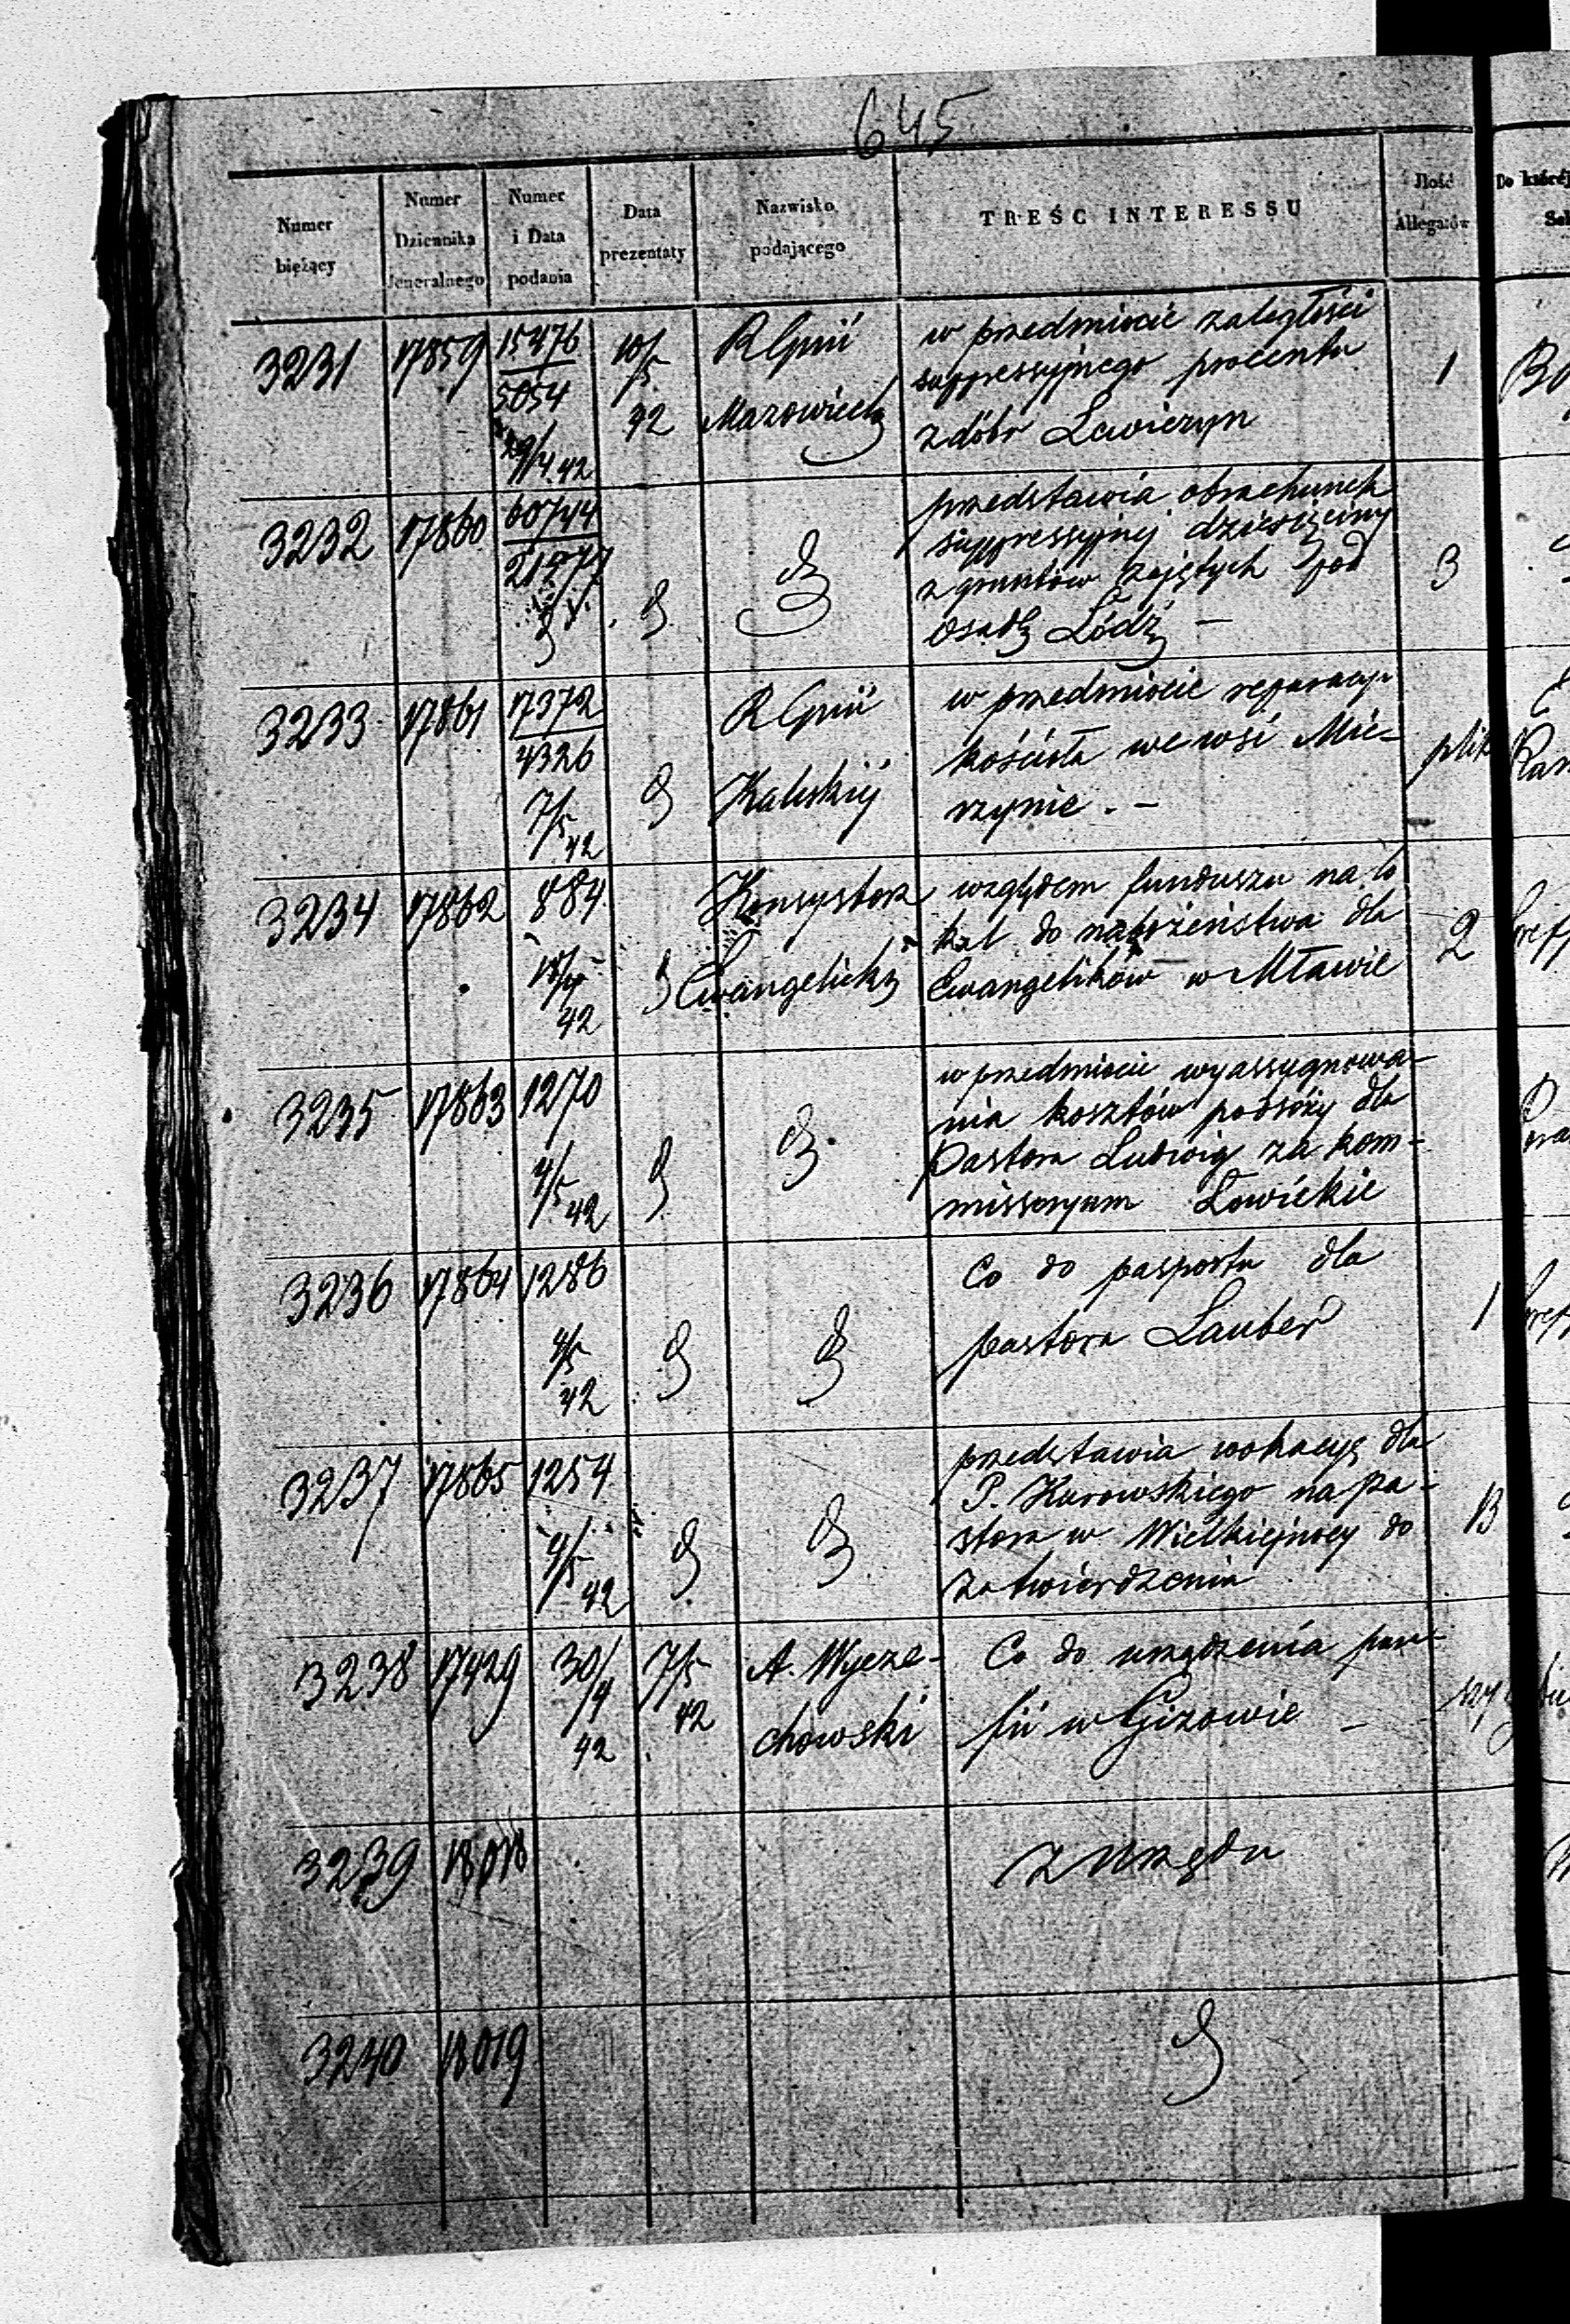 645
Numer bieżący
Numer Dziennika Jeneralnego
Numer i Data podania
Data prezentaty
Nazwisko podającego
TREŚĆ INTERESSU
Ilość Allegatów
Do której
3231 17859 15476 10/5 R Gnii w przedmiocie zaległości
5054 42 Mazowiecki suppressyjnego procentu 1
29/4 42 z dóbr Lewiczyn
3232 17860 60744 przedstawia obrachunek
suppressyjnej dziesięciny
z gruntów zajętych pod 3
osadę Łódź –
3233 17861 17372 R Gnii w przedmiocie reparacyi
4326 kościoła we wsi Mie- plik
7/5 42 Kaliskiéj rzynie . –
3234 17862 884 Konsystorz względem funduszu na lo
kal do nabożeństwa dla 2
42 Ewangelicki Ewangelików w Mławie
3235 17863 1270 w przedmiocie wyassygnowa-
nia kosztów podróży dla
4/5 Pastora Ludwig za kom-
42 missoryum Łowickie
3236 17864 1286 Co do pasportu dla
4/5 pastora Lauber 1
42
3237 17865 1254 przedstawia wokacyę dla
P. Kurowskiego na pa-
4/5 stora w Wielkiejnocy do 13
42 zatwierdzenia
3238 17429 30/4 7/5 A. Wycze- Co do urządzenia para-
42 42 chowski fii w Gizowie –
3239 18018 z urzędu
3240 18019